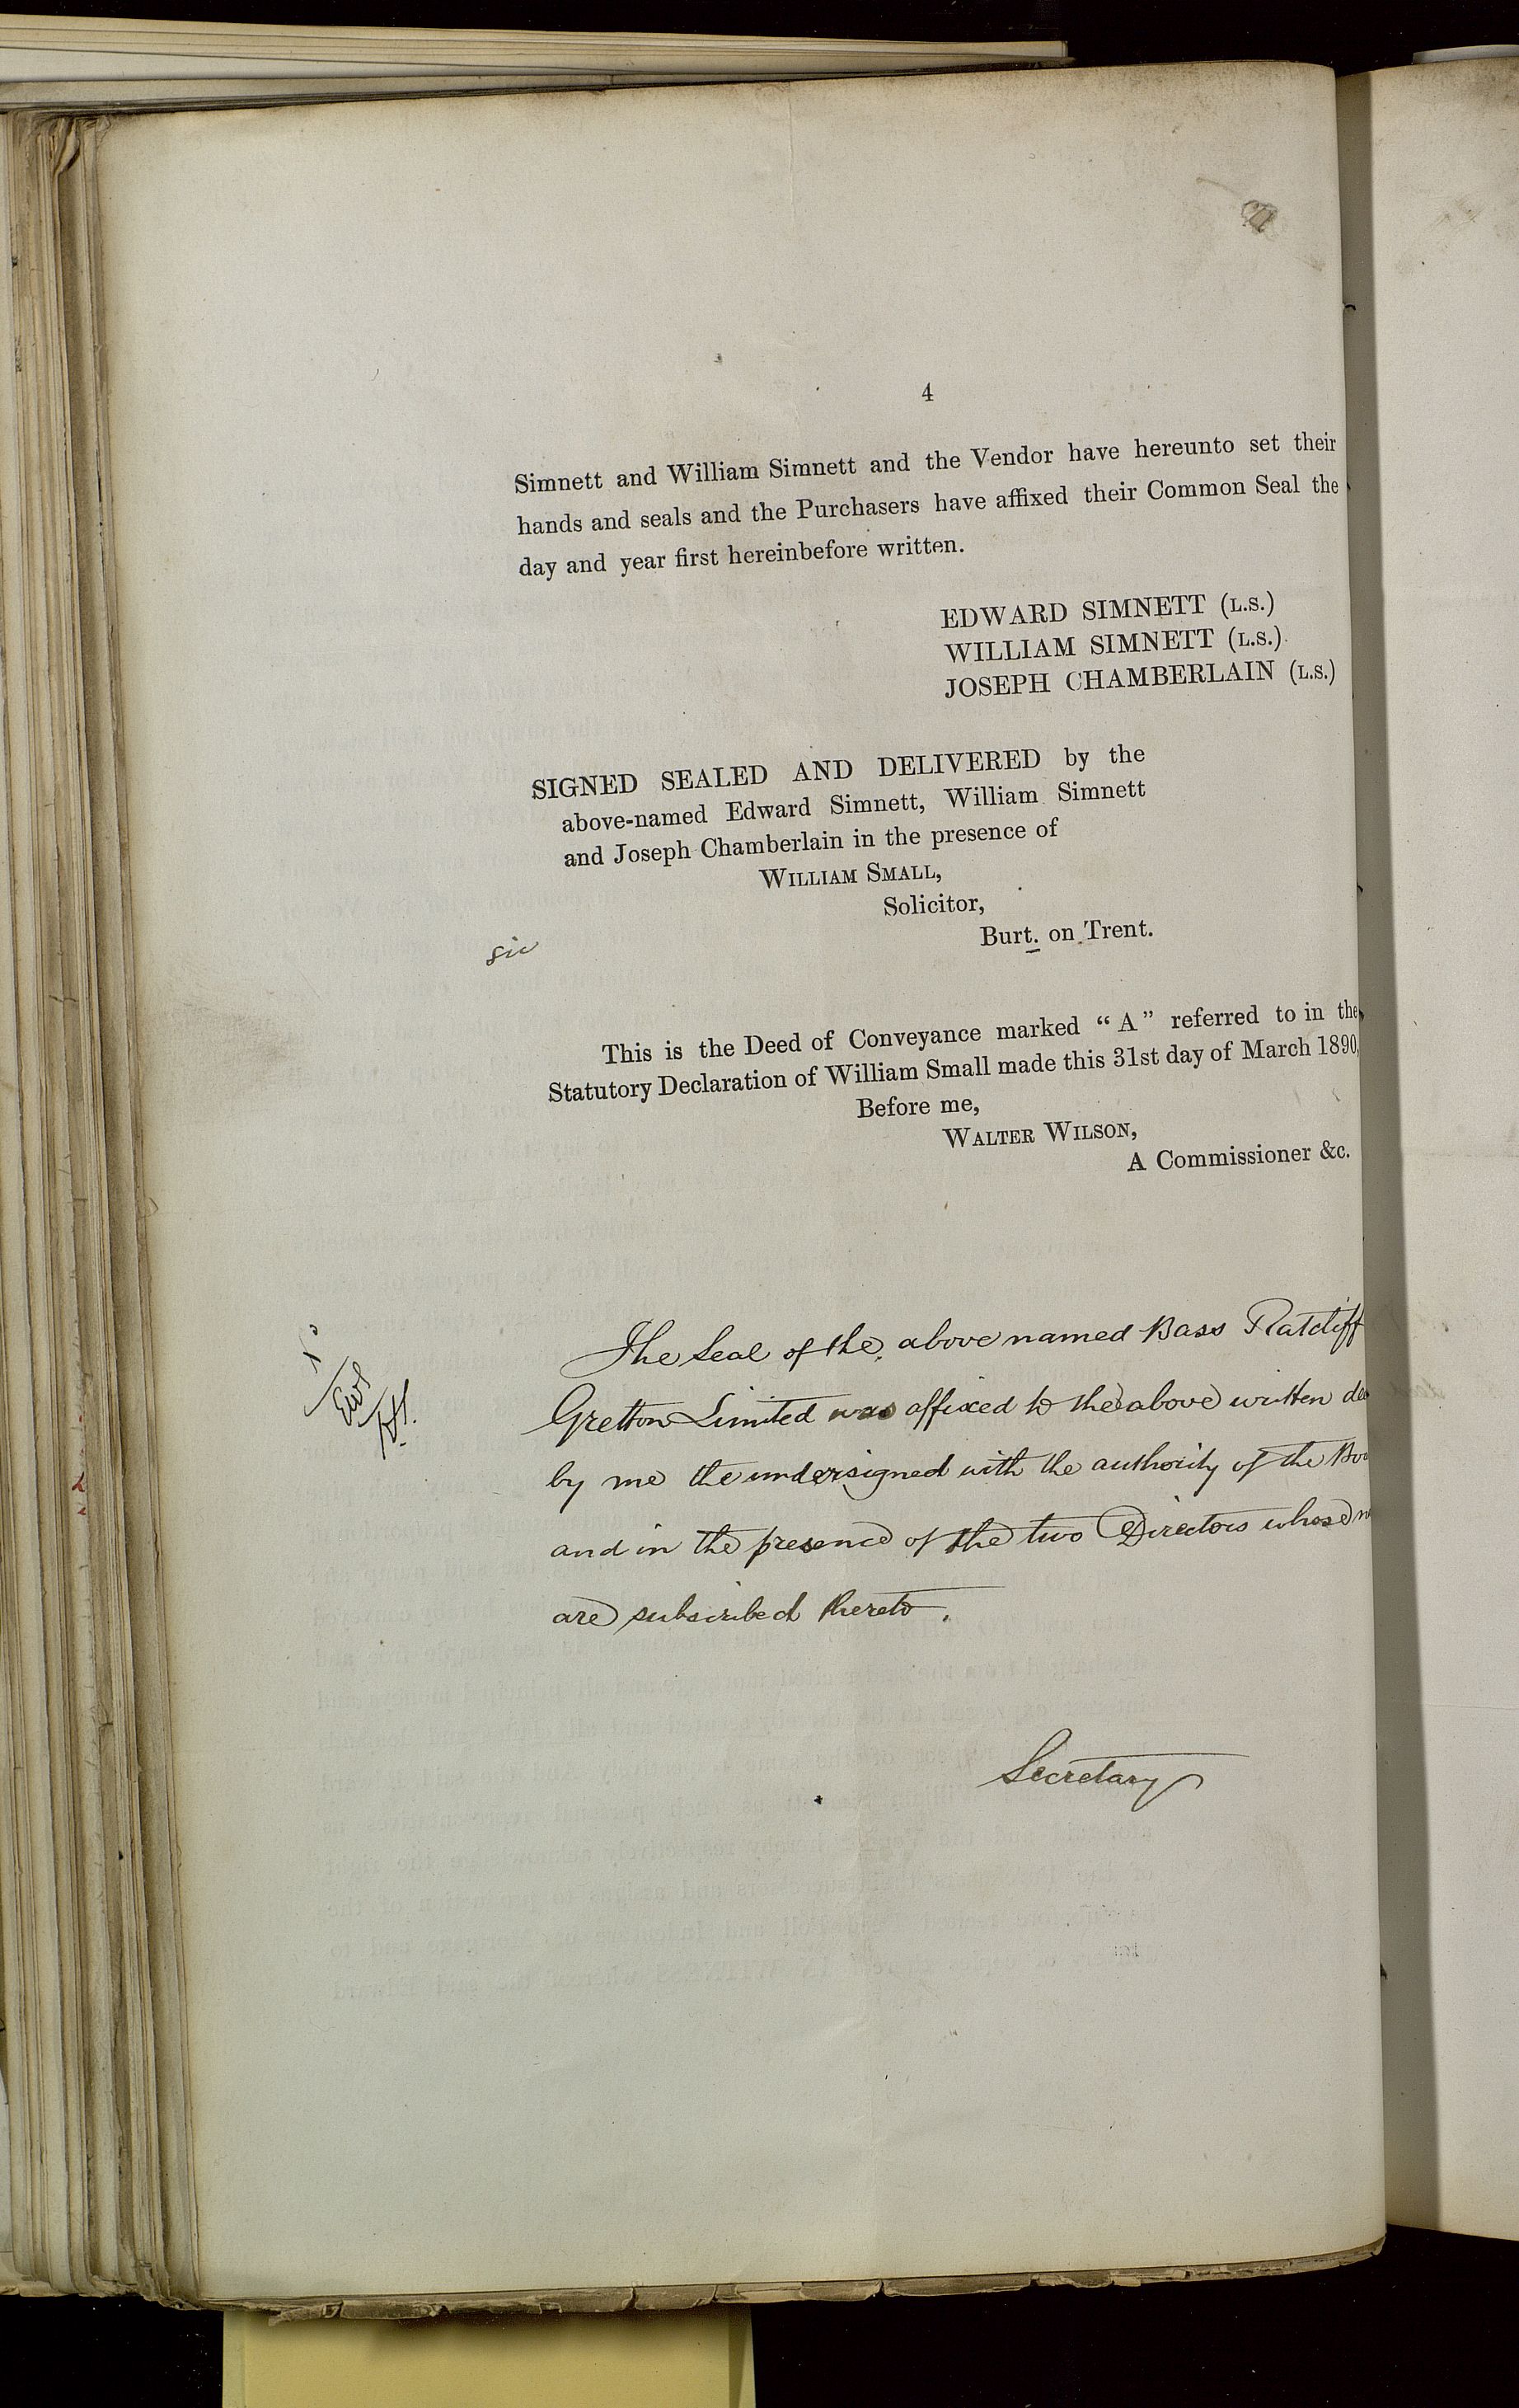 4
Simnett and William Simnett and the Vendor have hereunto set their
hands and seals and the Purchasers have affixed their Common Seal the
day and year first hereinbefore written.
EDWARD SIMNETT (L.S.)
WILLIAM SIMNETT (L.S.)
JOSEPH CHAMBERLAIN (L.S.)
SIGNED SEALED AND DELIVERED by the
above-named Edward Simnett, William Simnett
and Joseph Chamberlain in the presence of
WILLIAM SMALL,
Solicitor,
sic
Burt. on Trent.
This is the Deed of Conveyance marked “A” referred to in the
Statutory Declaration of William Small made this 31st day of March 1890,
Before me,
WALTER WILSON,
A Commissioner &c.
The Seal of the above named Bass Ratcliff
Gretton Limited was affixed to the above written
by me the undersigned with the authority of the
and in the presence of the two Directors whose
are subscribed thereto.
Secretary